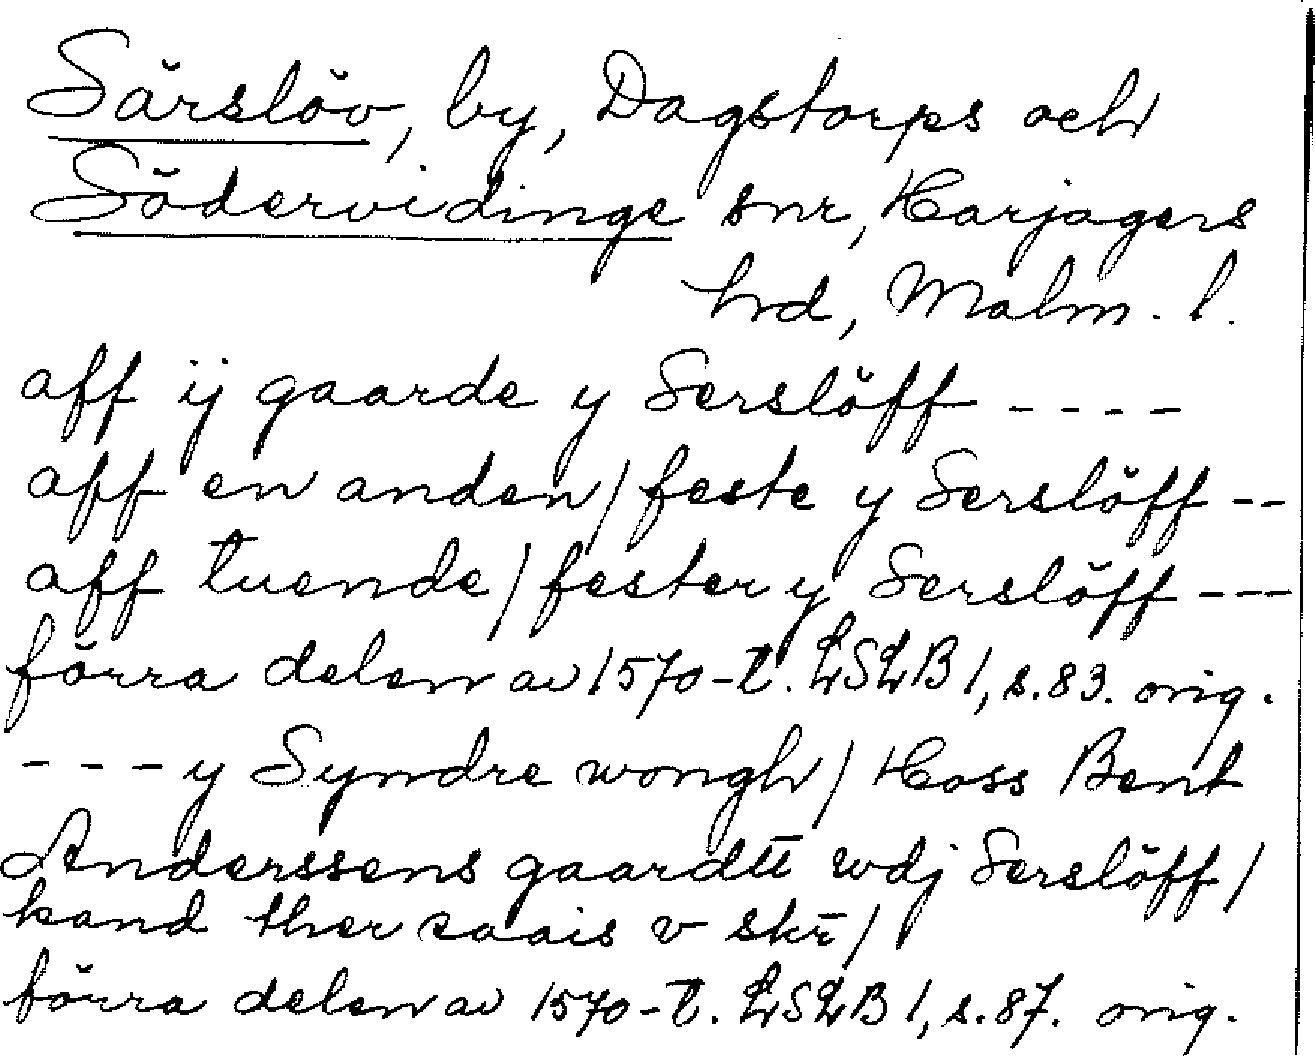 Särslöv, by, Dagstorps och
Södervidinge snr, Harjagers
hrd, Malm. l.
aff ij gaarde y Serslöff ----
aff en anden / feste y Serslöff --
aff tuende / fester y Serslöff ---
förra delen av 1570-t. LSLB 1, s. 83. orig.
--- y Syndre wongh / Hoss Bent
Anderssens gaardtt wdj Serslöff /
kand ther saais v skr̄ /
förra delen av 1570-t. LSLB 1, s. 87. orig.